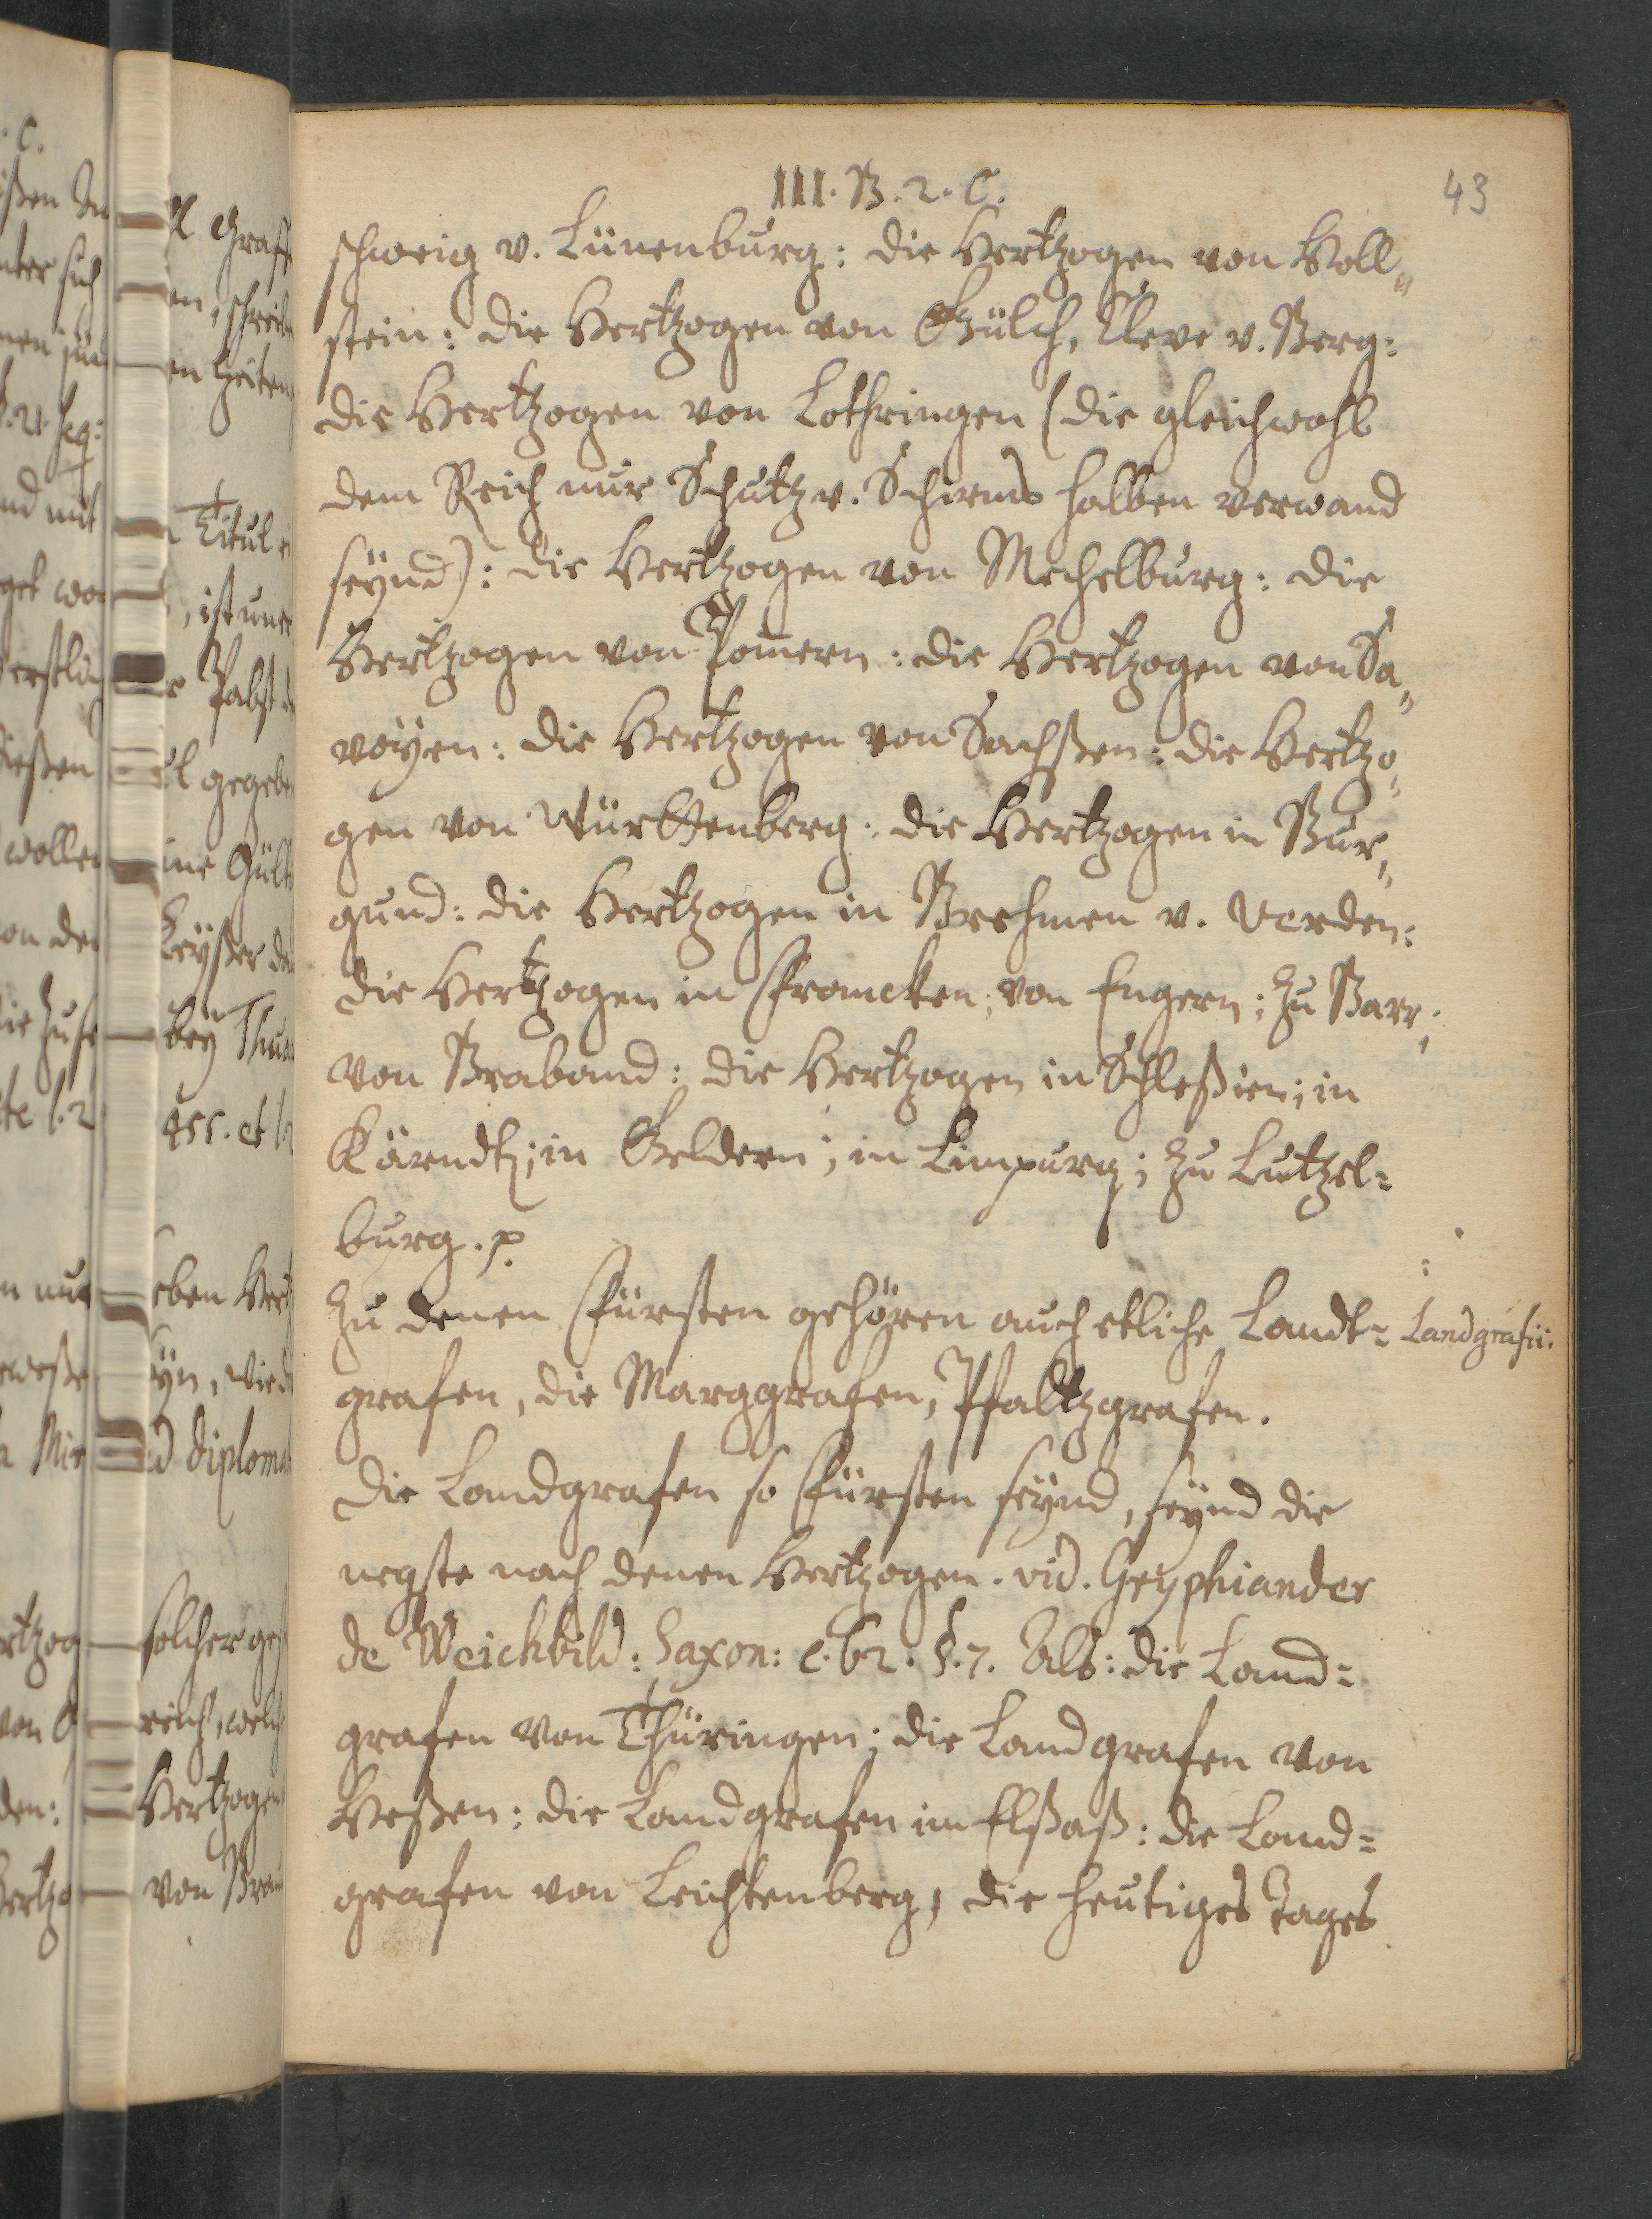 III. B. 2. C.
43
schweig v. Lünenburg: die Hertzogen von Holl„
stein: die Hertzogen von Gülch, Cleve v. Berg:
die Hertzogen von Lothringen (die gleichwohl
dem Reich nur Schutz v. Schirms halben verwand
seÿnd): die Hertzogen von Mechelburg: die
Hertzogen von Pom̄ern: die Hertzogen von Sa„
voÿen: die Hertzogen von Sachßen: die Hertzo„
gen von Württenberg: die Hertzogen in Bur„
gund: die Hertzogen in Brehmen v. Verden:
die Hertzogen in Francken; von Engern; zu Barr;
von Braband: die Hertzogen in Schleßien; in
Kärndt; in Geldern; in Limpurg; zu Lutzel=
burg. p
Zu denen Fürsten gehören auch etliche Landt=
Landgrafii:
grafen, die Marggrafen, Pfaltzgrafen.
Die Landgrafen so Fürsten seÿnd, seÿnd die
negste nach denen Hertzogen. vid. Gryphiander
de Weichbild: Saxon: c. 62. §. 7. Als: die Land=
grafen von Thüringen; die Landgrafen von
Heßen: die Landgrafen im Elßaß: die Land=
grafen von Leichtenberg, die heutiges tages